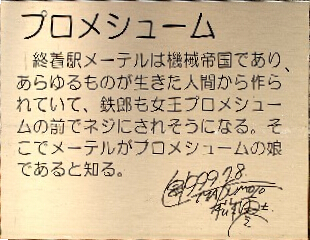 プロメシューム
終着駅メーテルは機械帝国であり、
あらゆるものが生きた人間から作ら
れていて、鉄郎も女王プロメシュー
ムの前でネジにされそうになる。そ
こでメーテルがプロメシュームの娘
であると知る。